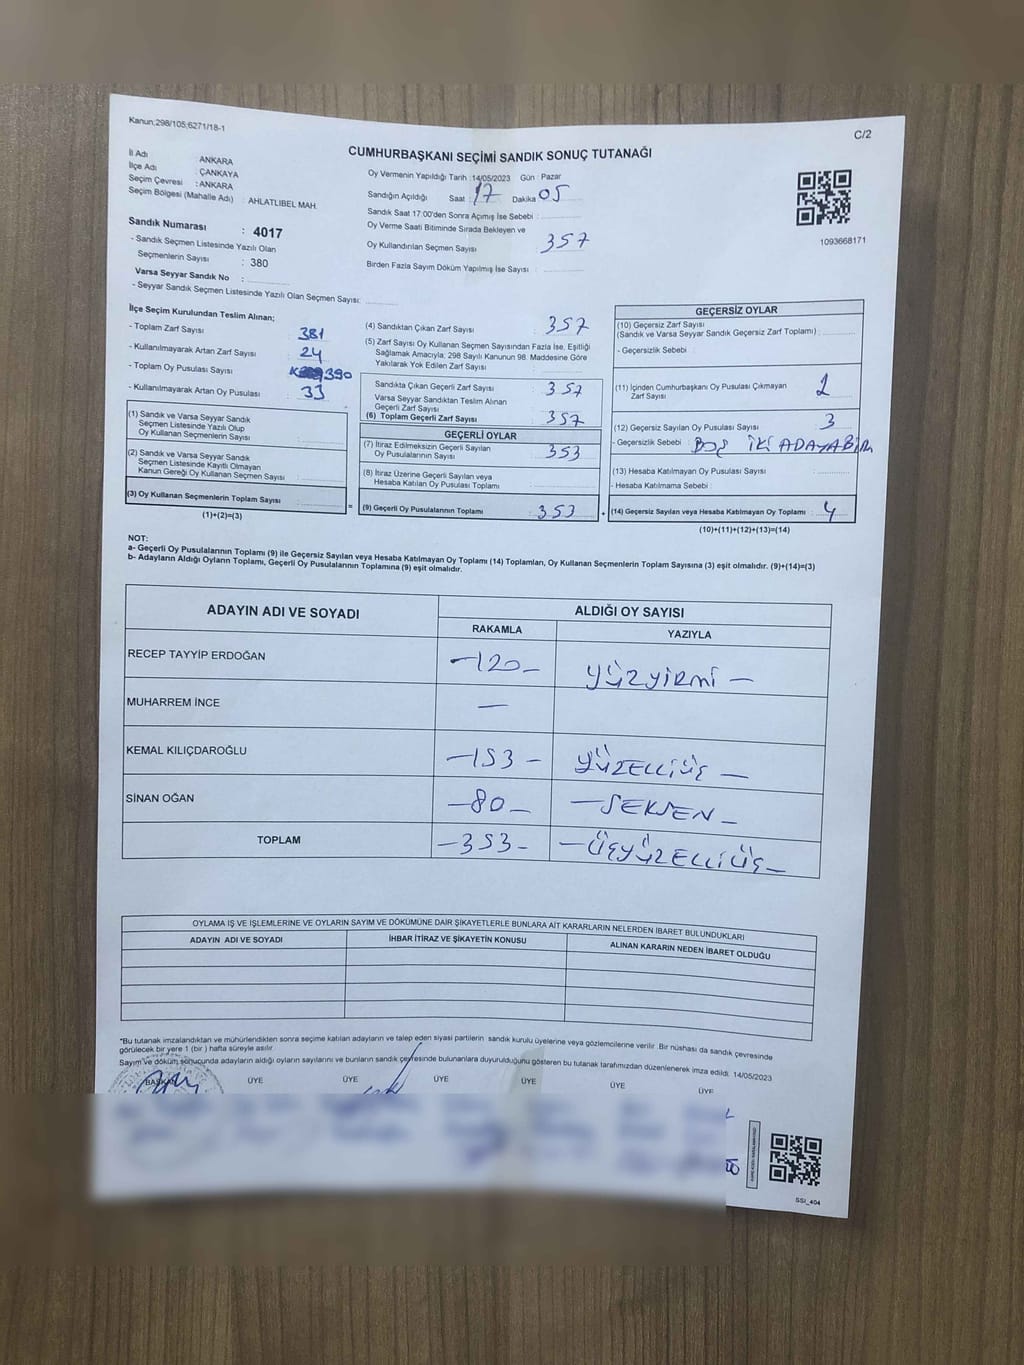 Kanun;298/105;6271/18-1
C/2
CUMHURBAŞKANI SEÇİMİ SANDIK SONUÇ TUTANAĞI
İl Adı : ANKARA
İlçe Adı : ÇANKAYA
Seçim Çevresi : ANKARA
Seçim Bölgesi (Mahalle Adı) : AHLATLIBEL MAH.
Sandık Numarası : 4017
- Sandık Seçmen Listesinde Yazılı Olan
Seçmenlerin Sayısı : 380
Varsa Seyyar Sandık No :
- Seyyar Sandık Seçmen Listesinde Yazılı Olan Seçmen Sayısı:
Oy Vermenin Yapıldığı Tarih : 14/05/2023 Gün : Pazar
Sandığın Açıldığı Saat : 17 Dakika 05
Sandık Saat 17.00'den Sonra Açımış İse Sebebi :
Oy Verme Saati Bitiminde Sırada Bekleyen ve
Oy Kullandırılan Seçmen Sayısı : 357
Birden Fazla Sayım Döküm Yapılmış İse Sayısı :
1093668171
İlçe Seçim Kurulundan Teslim Alınan;
- Toplam Zarf Sayısı : 381
- Kullanılmayarak Artan Zarf Sayısı : 24
- Toplam Oy Pusulası Sayısı : 390
- Kullanılmayarak Artan Oy Pusulası : 33
(1) Sandık ve Varsa Seyyar Sandık
Seçmen Listesinde Yazılı Olup
Oy Kullanan Seçmenlerin Sayısı :
(2) Sandık ve Varsa Seyyar Sandık
Seçmen Listesinde Kayıtlı Olmayan
Kanun Gereği Oy Kullanan Seçmen Sayısı :
(3) Oy Kullanan Seçmenlerin Toplam Sayısı :
(1)+(2)=(3)
(4) Sandıktan Çıkan Zarf Sayısı : 357
(5) Zarf Sayısı Oy Kullanan Seçmen Sayısından Fazla İse, Eşitliği
Sağlamak Amacıyla; 298 Sayılı Kanunun 98. Maddesine Göre
Yakılarak Yok Edilen Zarf Sayısı :
Sandıkta Çıkan Geçerli Zarf Sayısı : 357
Varsa Seyyar Sandıktan Teslim Alınan
Geçerli Zarf Sayısı :
(6) Toplam Geçerli Zarf Sayısı : 357
GEÇERLİ OYLAR
(7) İtiraz Edilmeksizin Geçerli Sayılan
Oy Pusulalarının Sayısı : 353
(8) İtiraz Üzerine Geçerli Sayılan veya
Hesaba Katılan Oy Pusulası Toplamı :
= (9) Geçerli Oy Pusulalarının Toplamı : 353 +
GEÇERSİZ OYLAR
(10) Geçersiz Zarf Sayısı
(Sandık ve Varsa Seyyar Sandık Geçersiz Zarf Toplamı) :
- Geçersizlik Sebebi :
(11) İçinden Cumhurbaşkanı Oy Pusulası Çıkmayan
Zarf Sayısı : 2
(12) Geçersiz Sayılan Oy Pusulası Sayısı : 3
- Geçersizlik Sebebi : BOŞ İKİ ADAYA
(13) Hesaba Katılmayan Oy Pusulası Sayısı :
- Hesaba Katılmama Sebebi :
(14) Geçersiz Sayılan veya Hesaba Katılmayan Oy Toplamı : 4
(10)+(11)+(12)+(13)=(14)
NOT:
a- Geçerli Oy Pusulalarının Toplamı (9) ile Geçersiz Sayılan veya Hesaba Katılmayan Oy Toplamı (14) Toplamları, Oy Kullanan Seçmenlerin Toplam Sayısına (3) eşit olmalıdır. (9)+(14)=(3)
b- Adayların Aldığı Oyların Toplamı, Geçerli Oy Pusulalarının Toplamına (9) eşit olmalıdır.
ADAYIN ADI VE SOYADI ALDIĞI OY SAYISI
RAKAMLA YAZIYLA
RECEP TAYYİP ERDOĞAN -120- YÜZYİRMİ -
MUHARREM İNCE -
KEMAL KILIÇDAROĞLU -153- YÜZELLİÜÇ -
SİNAN OĞAN -80- -SEKSEN-
TOPLAM -353- -ÜÇYÜZELLİÜÇ-
OYLAMA İŞ VE İŞLEMLERİNE VE OYLARIN SAYIM VE DÖKÜMÜNE DAİR ŞİKAYETLERLE BUNLARA AİT KARARLARIN NELERDEN İBARET BULUNDUKLARI
ADAYIN ADI VE SOYADI İHBAR İTİRAZ VE ŞİKAYETİN KONUSU ALINAN KARARIN NEDEN İBARET OLDUĞU
*Bu tutanak imzalandıktan ve mühürlendikten sonra seçime katılan adayların ve talep eden siyasi partilerin sandık kurulu üyelerine veya gözlemcilerine verilir. Bir nüshası da sandık çevresinde
görülecek bir yere 1 (bir ) hafta süreyle asılır.
Sayım ve döküm sonucunda adayların aldığı oyların sayılarını ve bunların sandık çevresinde bulunanlara duyurulduğunu gösteren bu tutanak tarafımızdan düzenlenerek imza edildi. 14/05/2023
BAŞKAN ÜYE ÜYE ÜYE ÜYE ÜYE ÜYE
SSI_404